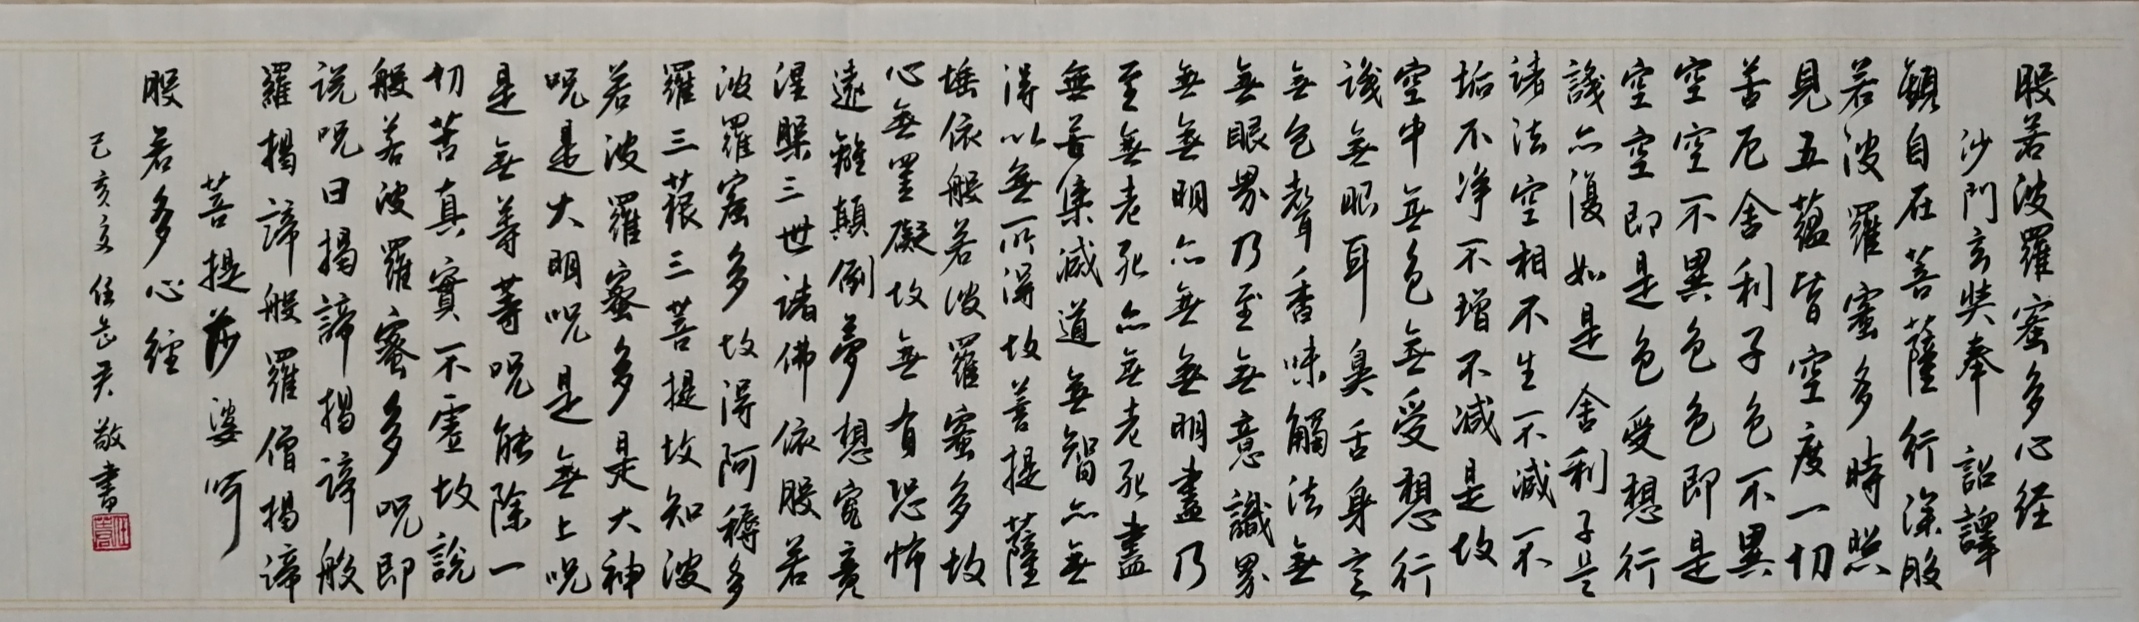 般若波羅蜜多心经
沙門玄奘奉 詔譯
觀自在菩薩行深般
若波羅蜜多時照
見五蘊皆空度一切
苦厄舍利子色不異
空空不異色色即是
空空即是色受想行
識亦復如是舍利子是
诸法空相不生不减不
垢不净不增不减是故
空中無色無受想行
識無眼耳鼻舌身意
無色聲香味觸法無
無眼界乃至無意識界
無無明亦無無明盡乃
至無老死亦無老死盡
無苦集减道無智亦無
得以無所得故菩提薩
埵依般若波羅蜜多故
心無罣礙故無有恐怖
遠離顛倒夢想究竟
涅槃三世诸佛依般若
波羅蜜多故得阿耨多
羅三藐三菩提故知波
若波羅蜜多是大神
呪是大明呪是無上呪
是無等等呪能除一
切苦真實不虛故說
般若波羅蜜多呪即
说呪曰揭諦揭諦般
羅揭諦般羅僧揭諦
菩提莎婆呵
般若多心経
己亥 任 君敬書